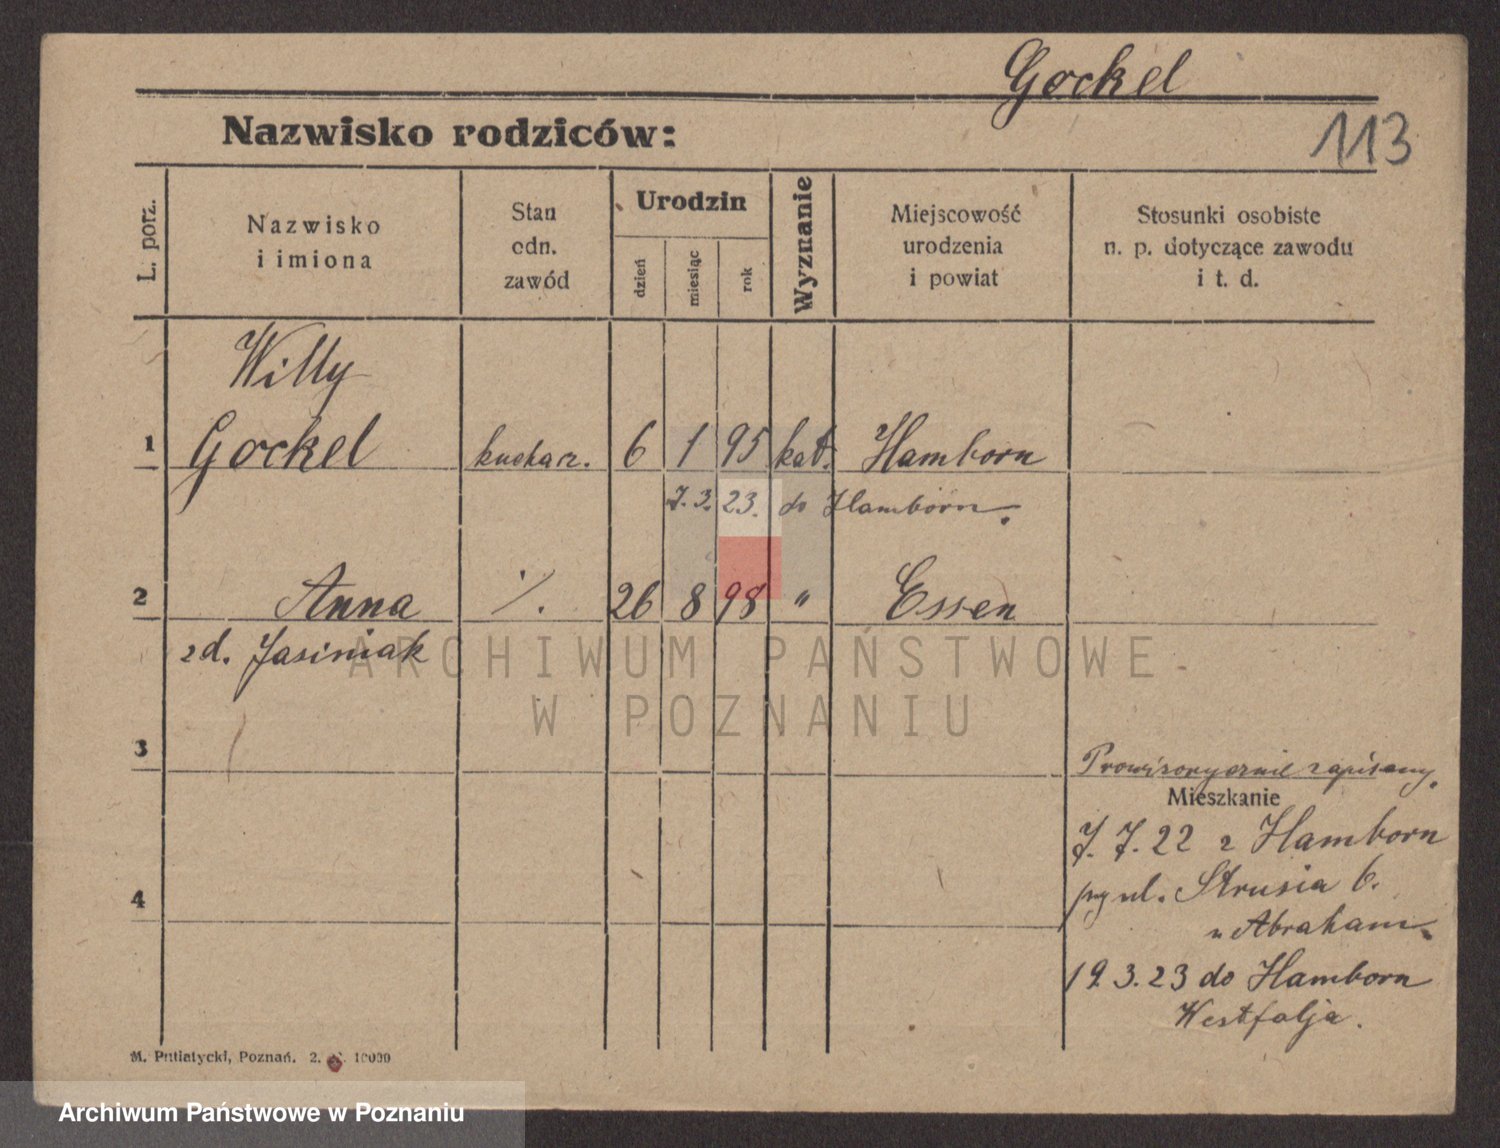 Gockel
Nazwisko rodziców:
113
L. porz.
Nazwisko
i imiona
Stan
odn.
zawód
Urodzin
dzień
miesiąc
rok
Wyznanie
Miejscowość
urodzenia
i powiat
Stosunki osobiste
n. p. dotyczące zawodu
i t. d.
Willy
1 Gockel kucharz. 6 1 95 kat. Hamborn
7. 3. 23. do Hamborn.
2 Anna ./. 26 8 98 " Essen
zd. Jasiniak
ARCHIWUM PAŃSTWOWE
W POZNANIU
3
Prowizorycznie zapisany.
Mieszkanie
7. 7. 22 z Hamborn
4
przy ul. Strusia 6.
u Abraham.
19. 3. 23 do Hamborn
Westfalja.
M. Putiatycki, Poznań. 2. 10000
Archiwum Państwowe w Poznaniu